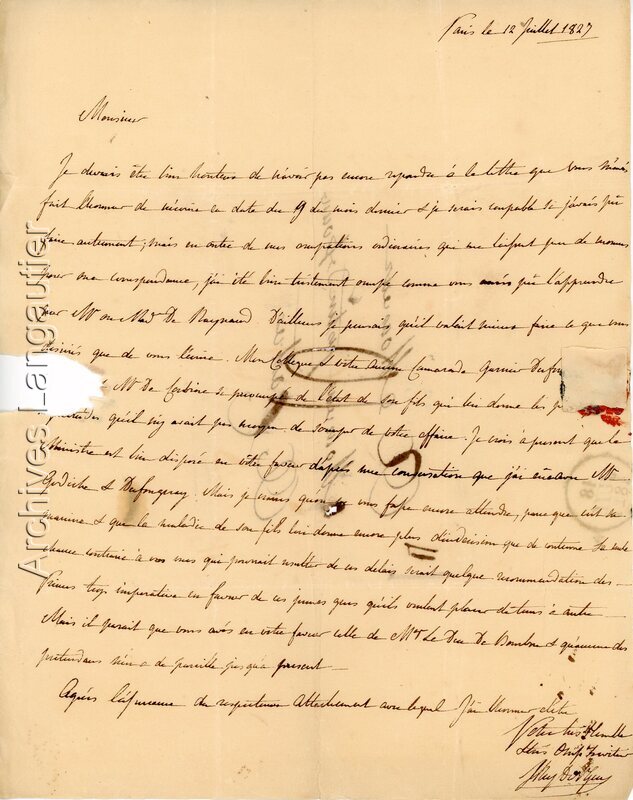 Paris le 12 Juillet 1827
Monsieur
Je devrais être bien honteux de n'avoir pas encore repondu à la lettre que vous m'avés
fait l'honneur de m'écrire en date du 19 du mois dernier & je serais coupable si j'avais pû
faire autrement; mais en outre de mes occupations ordinaires qui me laissent peu de momens
pour ma correspondance, j'ai été bien tristement occupé comme vous avés pû l'apprendre
par Mr ou Mad. De Raynaud. D'ailleurs je pensais qu'il valait mieux faire ce que vous
desiriés que de vous l'écrire. Mon Collegue & votre ancien Camarade Garnier
Mr De Corbiere se preoccupe de l'etat de son fils qui lui donne les
qu'il n'y avait pas moyen de s'occuper de votre affaire. Je crois à present que le
Ministre est bien disposé en votre faveur depuis une conversation que j'ai eu avec Mr
Godiche & Dufougeray. Mais je crains qu'on ne vous fasse encore attendre, parce que c'est sa
maniere & que la maladie de son fils lui donne encore plus d'indecision que de coutume. La seule
chance contraire à vos vues qui pourrait resulter de ces delais serait quelque recommendation des
Princes trop imperative en faveur de ces jeunes gens qu'ils veulent placer de tems à autre
Mais il parait que vous avés en votre faveur celle de Mgr Le Duc De Bourbon & qu'aucun des
pretendans n'en a de pareille jusqu'à present
Agréés l'assurance du respectueux attachement avec lequel J'ai l'honneur d'etre
Votre très humble
& très Obeisst Serviteur
Archives Langautier